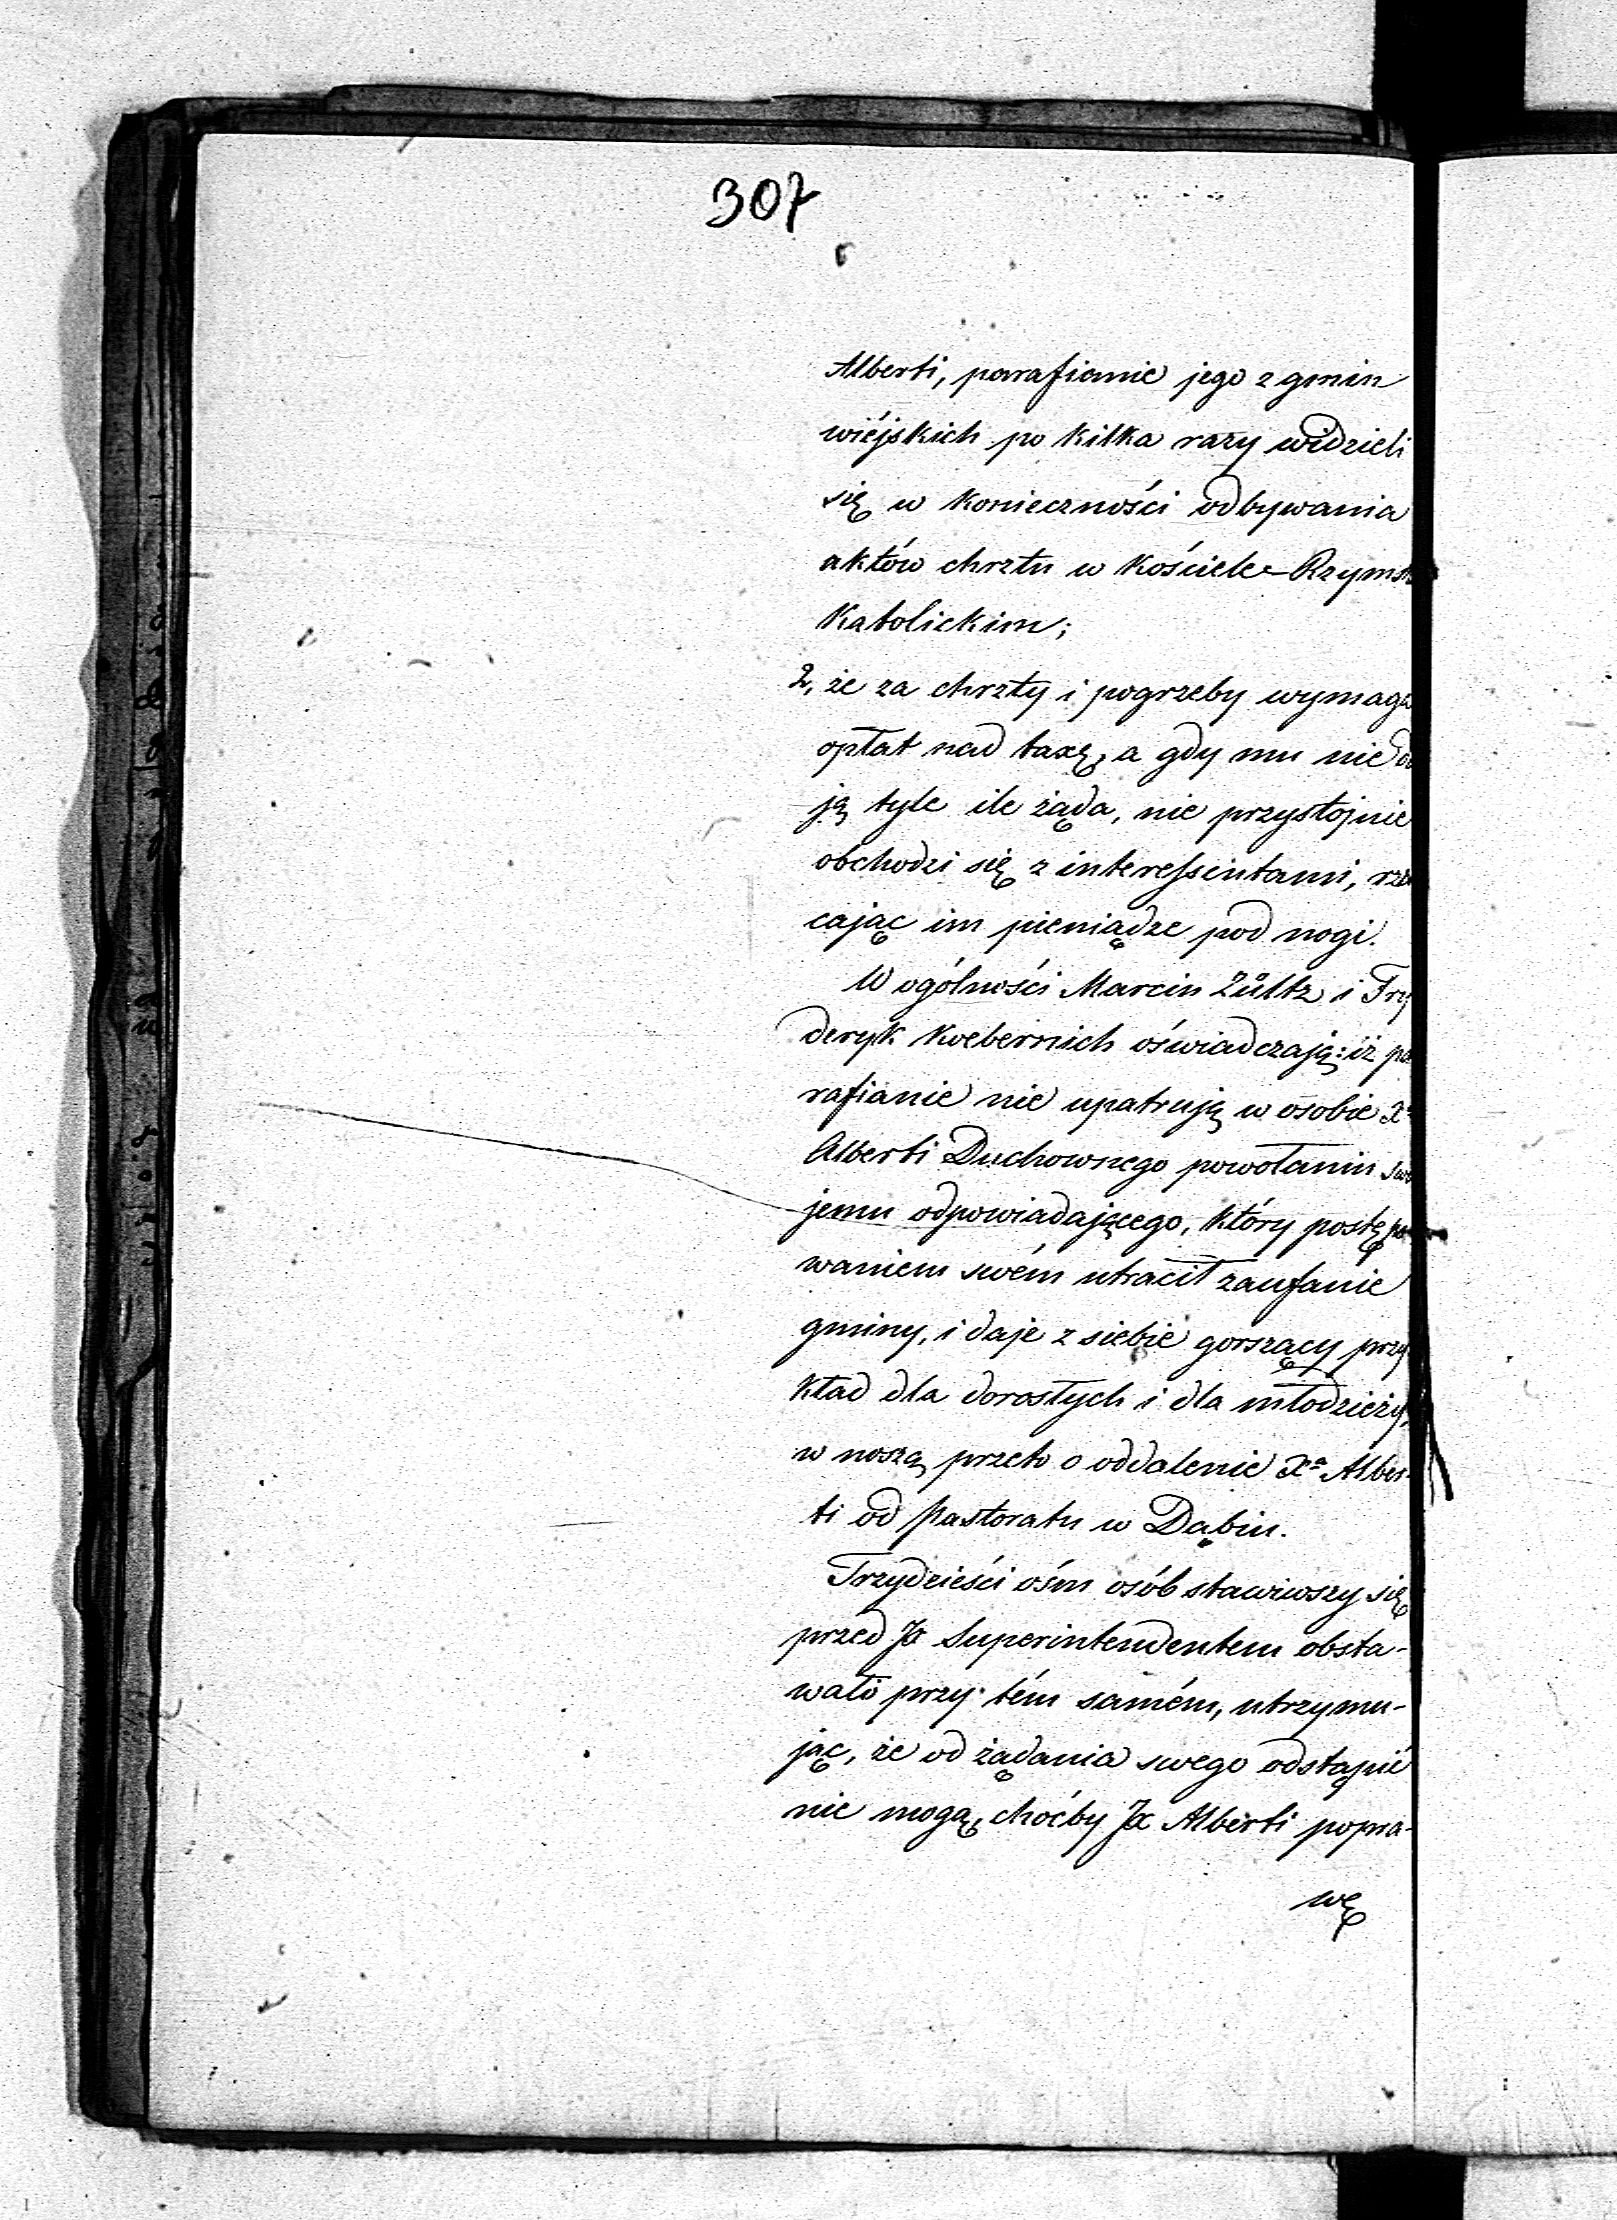 307
Alberti, parafianie jego z gmin
wiéjskich po kilka razy widzieli
się w konieczności odbywania
aktów chrztu w Kościele Rzyms
Katolickim;
2, że za chrzty i pogrzeby wymaga
opłat nad taxę, a gdy mu nie da
ją tyle ile żąda, nie przystojnie
obchodzi się z interessentami, rzu
cając im pieniądze pod nogi.
W ogólności Marcin Zültz i Fry
deryk Kvebernich oświadczają: iż pa
rafianie nie upatrują w osobie Xa
Alberti Duchownego powołaniu swo
jemu odpowiadającego, który postępo
waniem swém utracił zaufanie
gminy, i daje z siebie gorszący przy
kład dla dorosłych i dla młodzieży,
w noszą przeto o oddalenie Xa Alber-
ti od Pastoratu w Dąbiu.
Trzydzieści óśm osób stawiwszy się
przed JX Superintendentem obsta-
wało przy tém samém, utrzymu-
jąc, że od żądania swego odstąpić
nie mogą, choćby JX Alberti popra-
wę